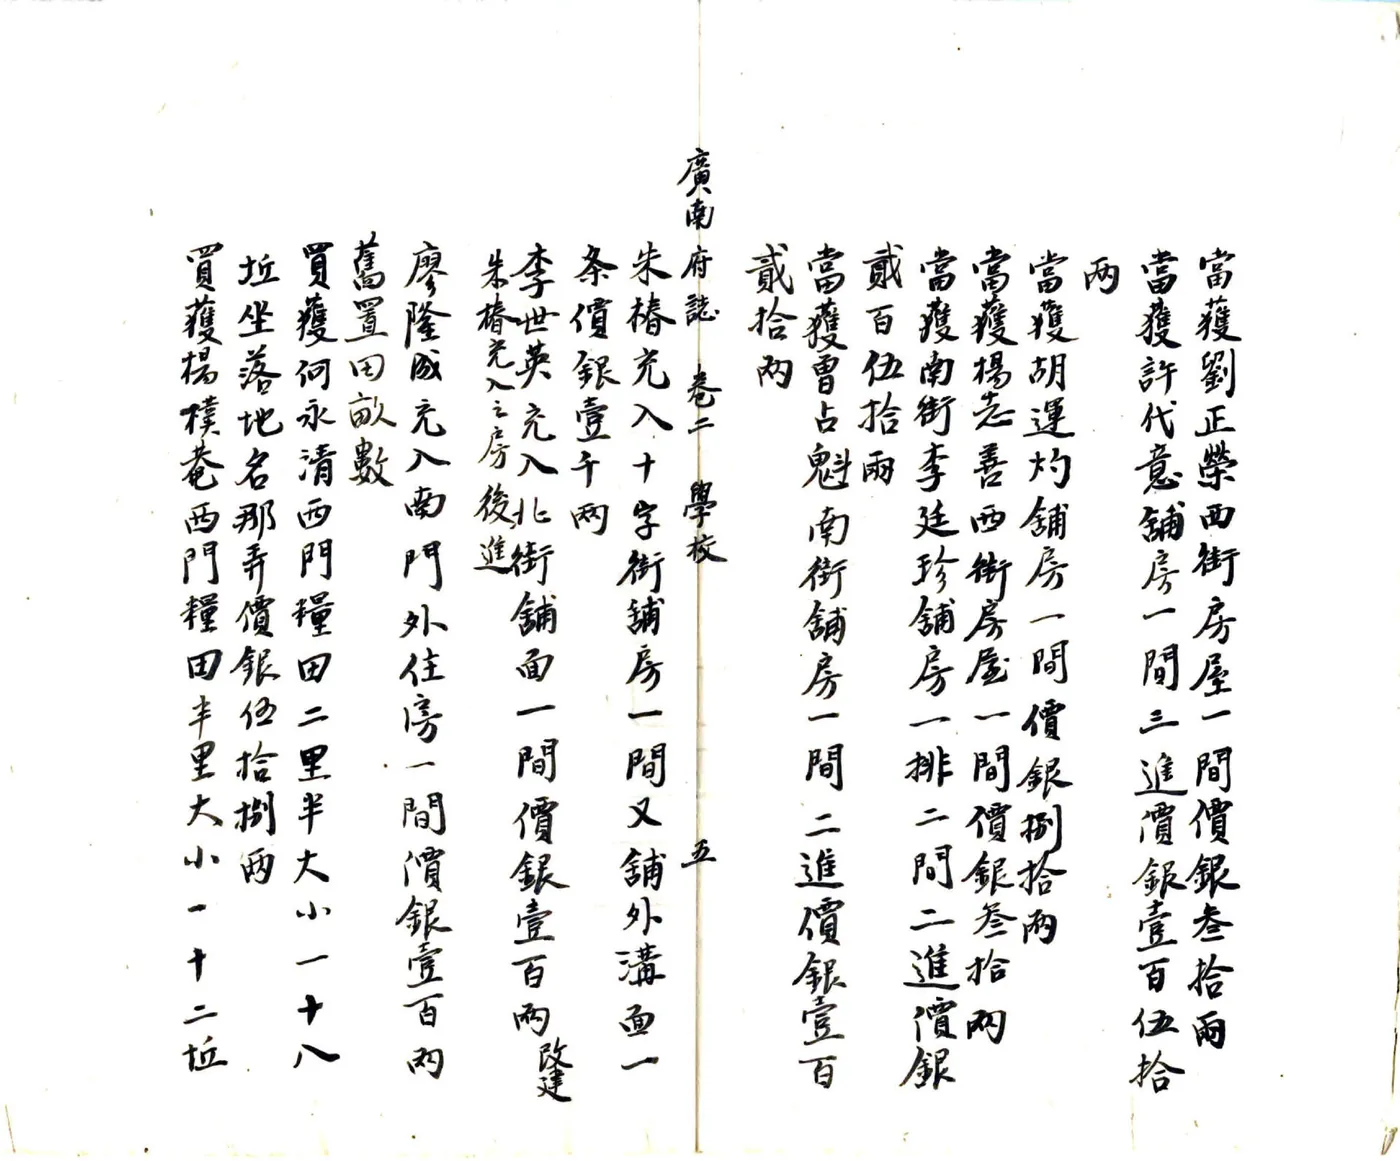 當獲劉正榮西街房屋一間價銀叁拾兩
當獲許代意舖房一間三進價銀壹百伍拾
两
當獲胡運灼舖房一間價銀捌拾兩
當獲楊志善西街房屋一間價銀叁拾兩
當獲南街李廷珍舖房一排二間二進價銀
貳百伍拾兩
當獲曾占魁南街舖房一間二進價銀壹百
貳拾两
廣南府誌 卷二 學校 五
朱椿充入十字街舖房一間又舖外溝面一
条價銀壹千两
李世英充入北街舖面一間價銀壹百兩改建
朱椿充入之房後進
廖隆成充入南門外住房一間價銀壹百兩
舊置田畝數
買獲何永清西門糧田二里半大小一十八
坵坐落地名那弄價銀伍拾捌兩
買獲楊樸菴西門糧田半里大小一十二坵